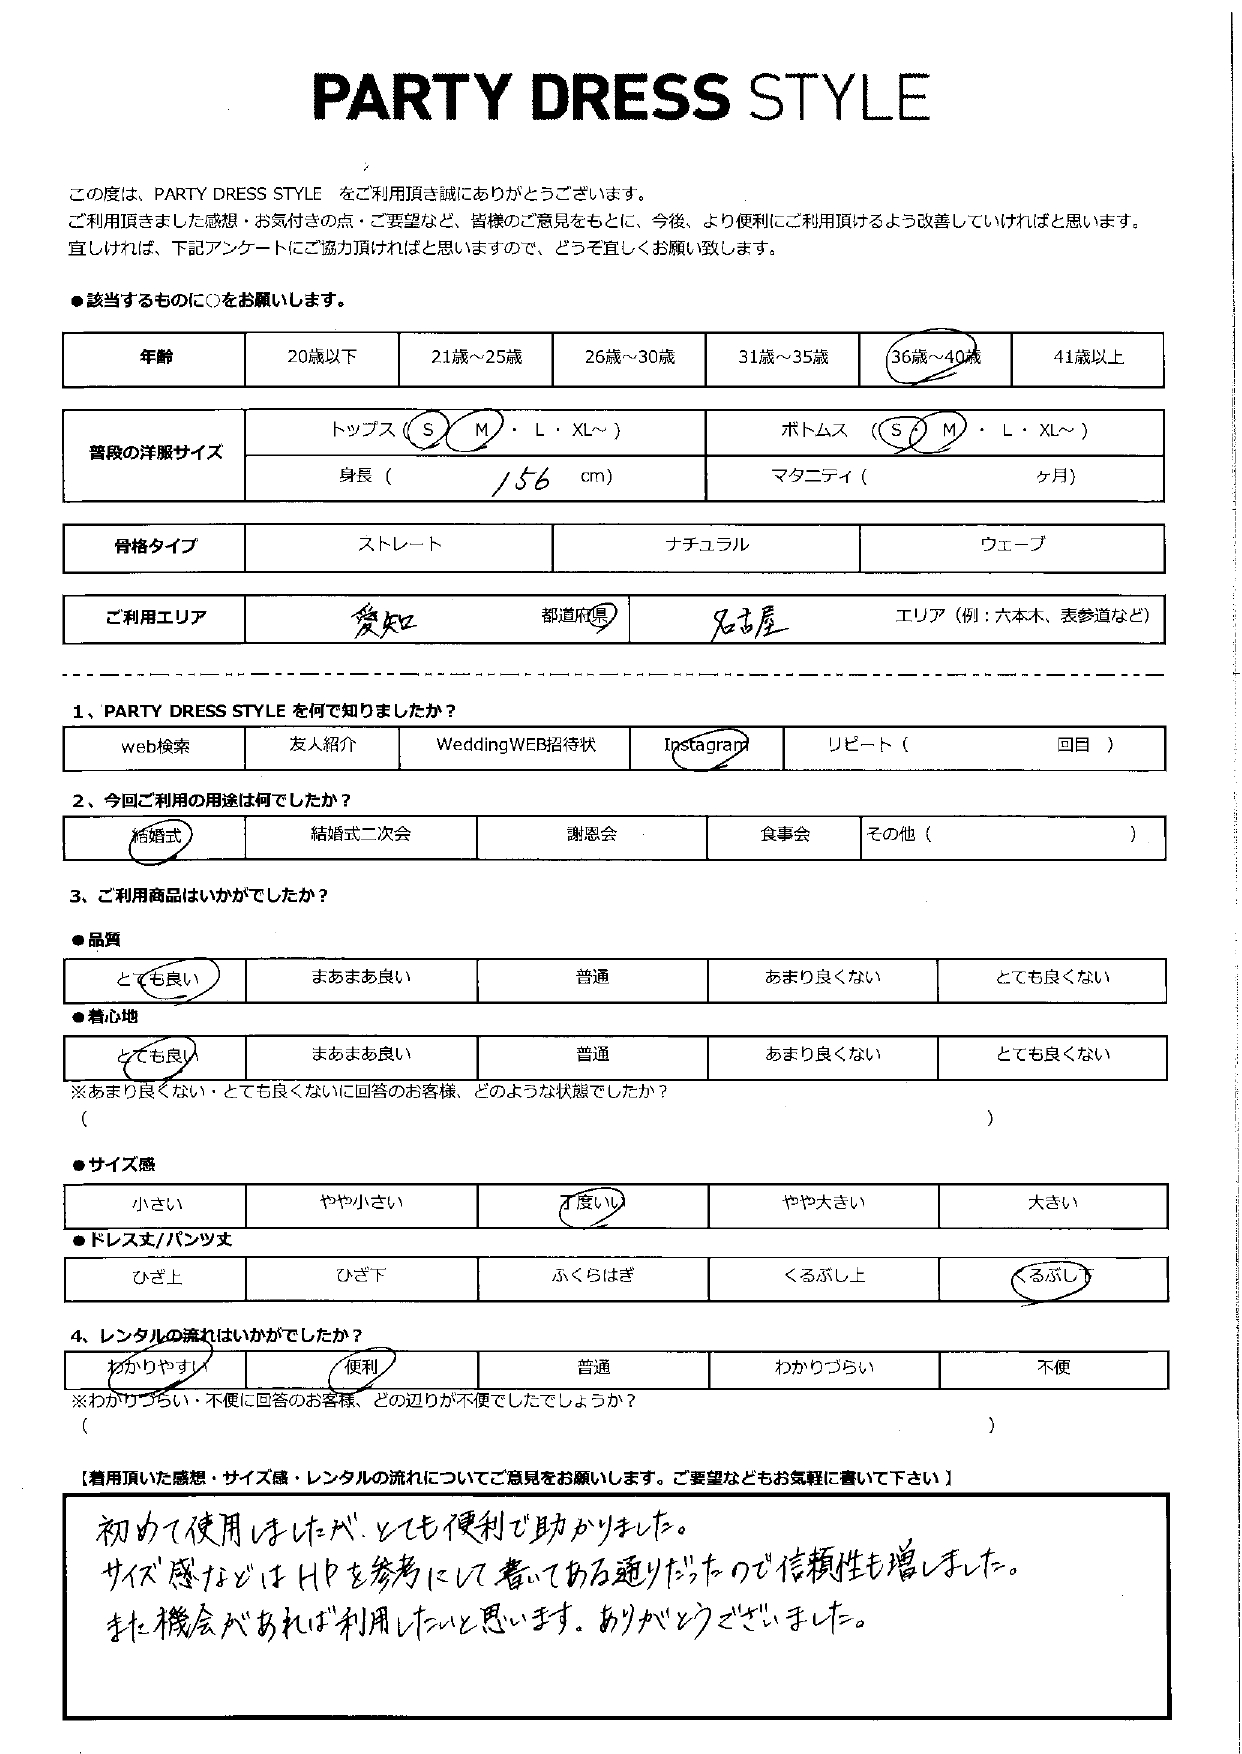 PARTY DRESS STYLE
この度は、PARTY DRESS STYLE をご利用頂き誠にありがとうございます。
ご利用頂きました感想・お気付きの点・ご要望など、皆様のご意見をもとに、今後、より便利にご利用頂けるよう改善していければと思います。
宜しければ、下記アンケートにご協力頂ければと思いますので、どうぞ宜しくお願い致します。
●該当するものに○をお願いします。
年齢 20歳以下 21歳～25歳 26歳～30歳 31歳～35歳 36歳～40歳 41歳以上
普段の洋服サイズ トップス ( S ・ M ・ L ・ XL～ ) ボトムス ( S ・ M ・ L ・ XL～ )
身長 ( 156 cm) マタニティ ( ヶ月)
骨格タイプ ストレート ナチュラル ウェーブ
ご利用エリア 愛知 都道府県 名古屋 エリア（例：六本木、表参道など）
1、PARTY DRESS STYLE を何で知りましたか？
web検索 友人紹介 WeddingWEB招待状 Instagram リピート ( 回目 )
2、今回ご利用の用途は何でしたか？
結婚式 結婚式二次会 謝恩会 食事会 その他 ( )
3、ご利用商品はいかがでしたか？
●品質
とても良い まあまあ良い 普通 あまり良くない とても良くない
●着心地
とても良い まあまあ良い 普通 あまり良くない とても良くない
※あまり良くない・とても良くないに回答のお客様、どのような状態でしたか？
( )
●サイズ感
小さい やや小さい 丁度いい やや大きい 大きい
●ドレス丈/パンツ丈
ひざ上 ひざ下 ふくらはぎ くるぶし上 くるぶし下
4、レンタルの流れはいかがでしたか？
わかりやすい 便利 普通 わかりづらい 不便
※わかりづらい・不便に回答のお客様、どの辺りが不便でしたでしょうか？
( )
【着用頂いた感想・サイズ感・レンタルの流れについてご意見をお願いします。ご要望などもお気軽に書いて下さい】
初めて使用しましたが、とても便利で助かりました。
サイズ感などはHPを参考にして書いてある通りだったので信頼性も増しました。
また機会があれば利用したいと思います。ありがとうございました。